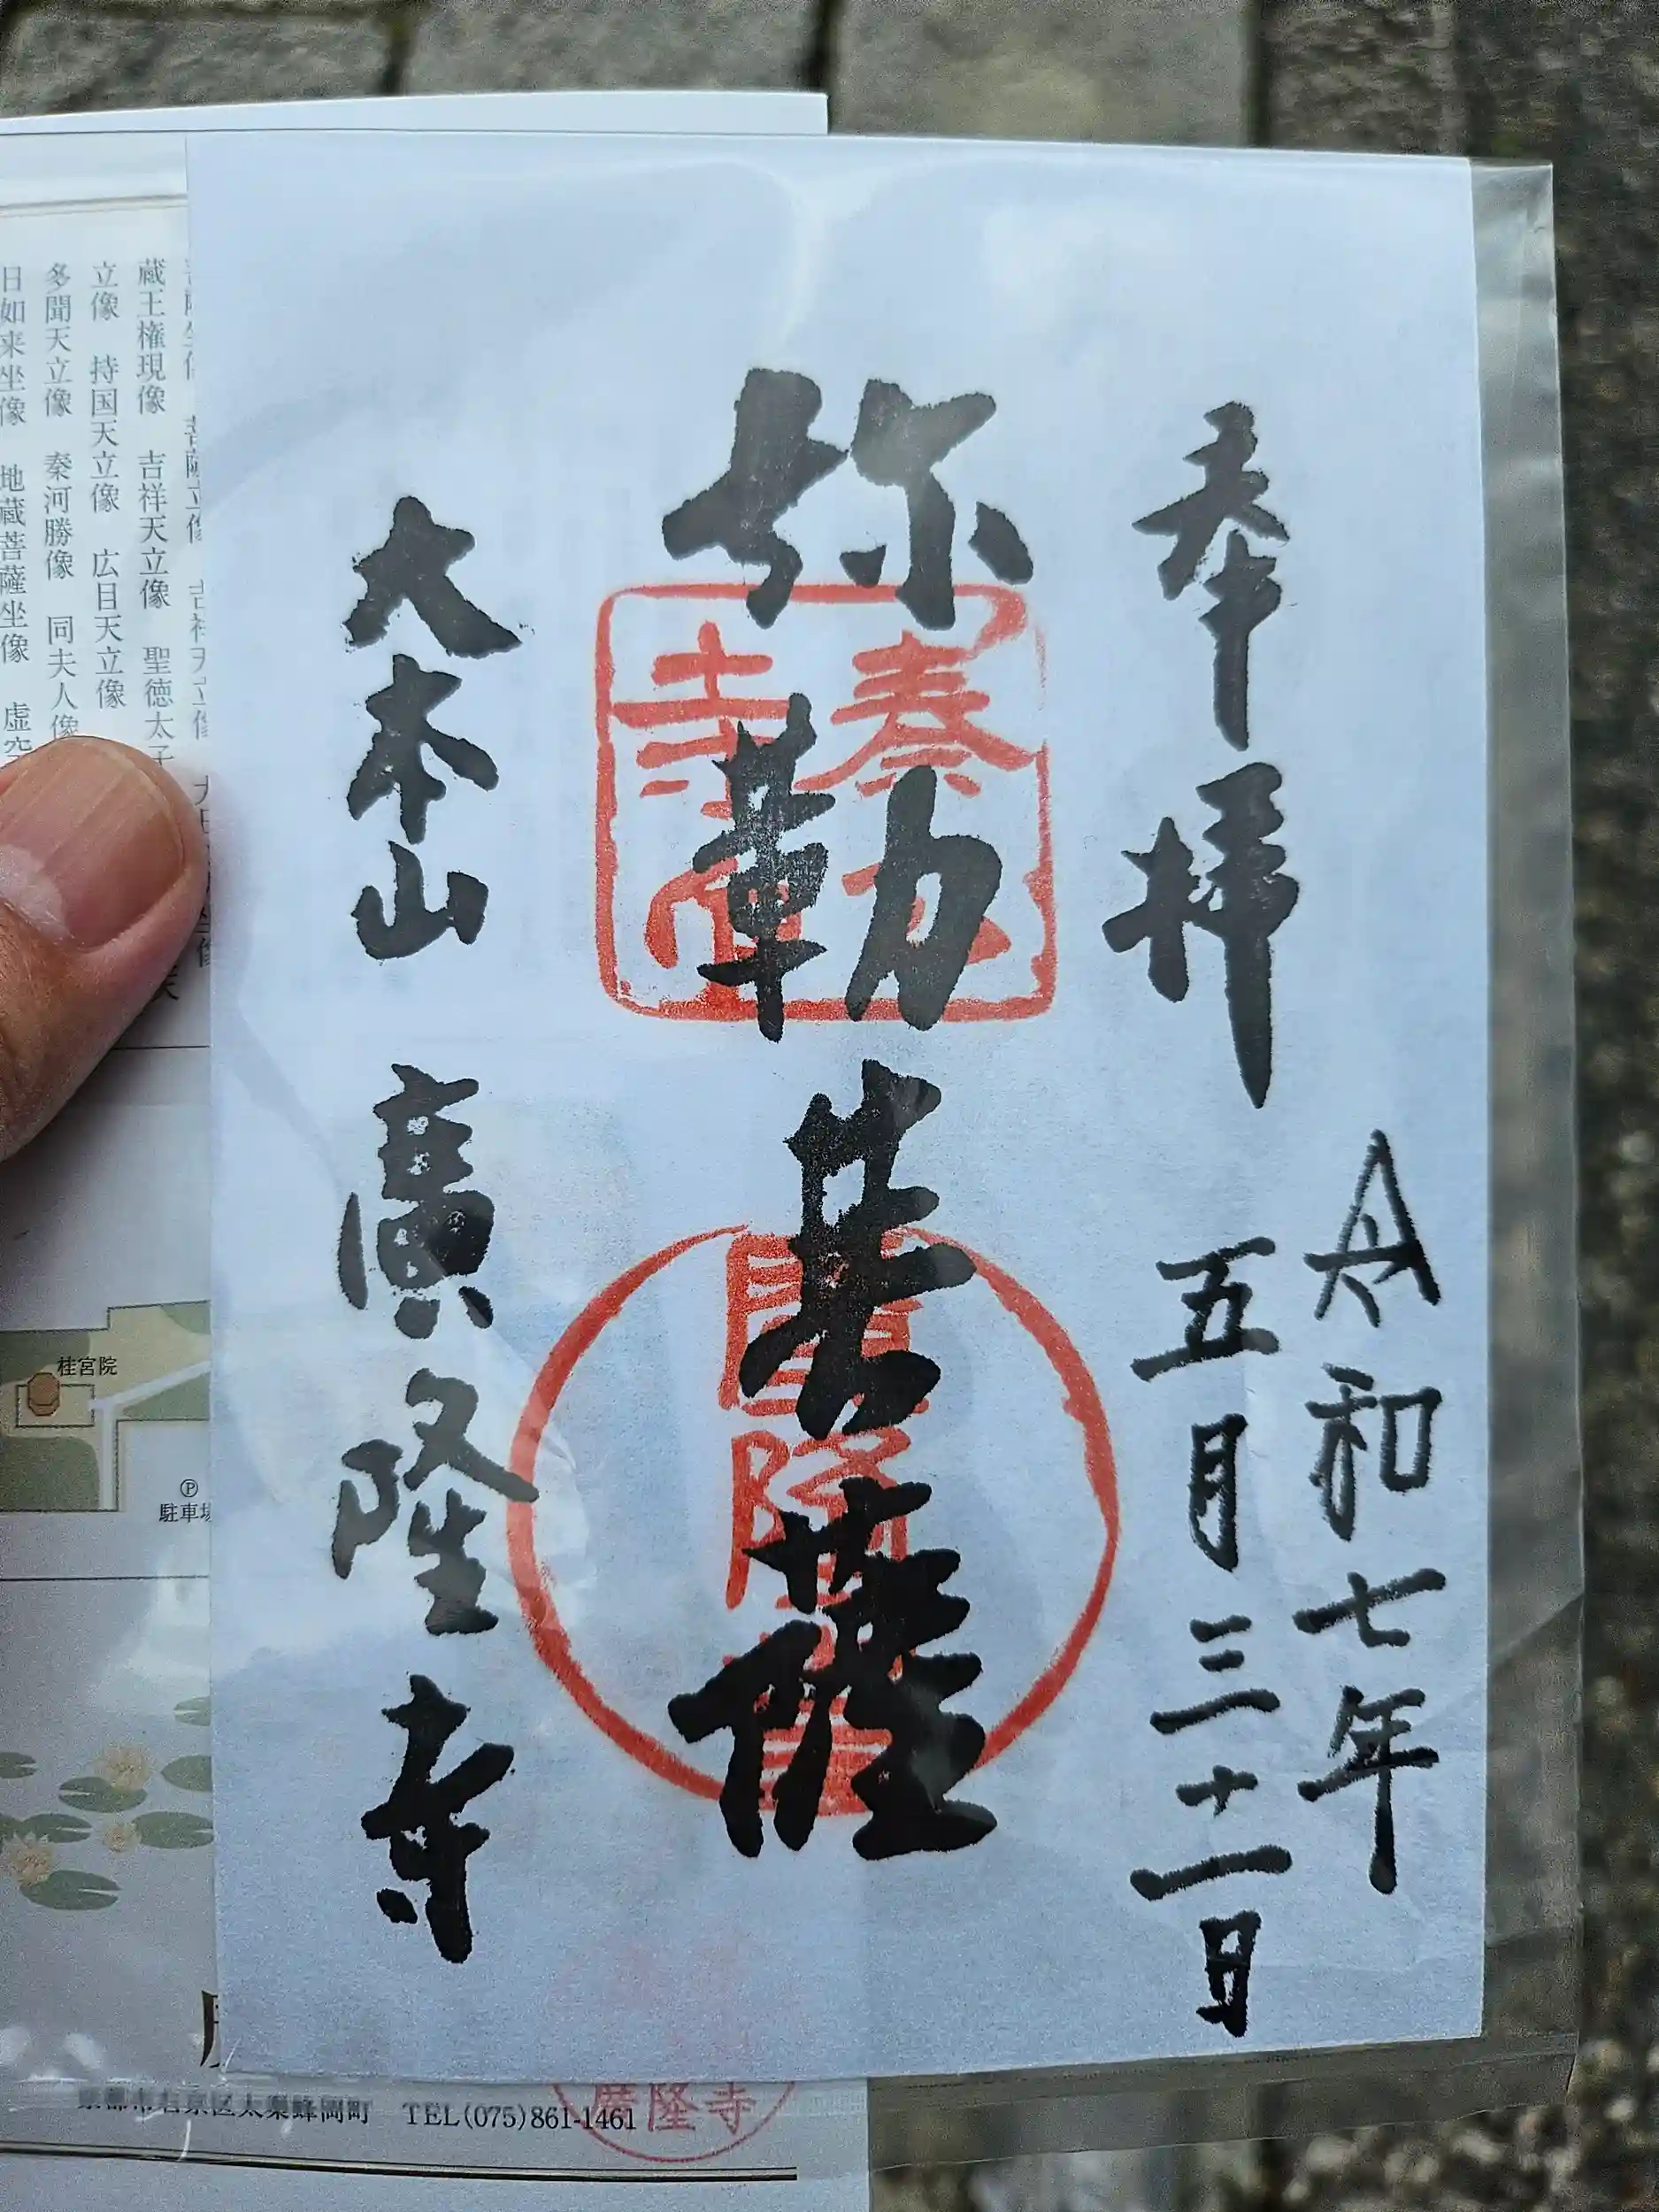 奉拝
令和七年
五月三十一日
弥勒菩薩
大本山 廣隆寺
蔵王権現像 吉祥天立像 聖徳太子
立像 持国天立像 広目天立像
多聞天立像 秦河勝像 同夫人像
日如来坐像 地蔵菩薩坐像 虚空
桂宮院
Ⓟ
駐車場
京都市右京区太秦蜂岡町 TEL(075)861-1461
廣隆寺